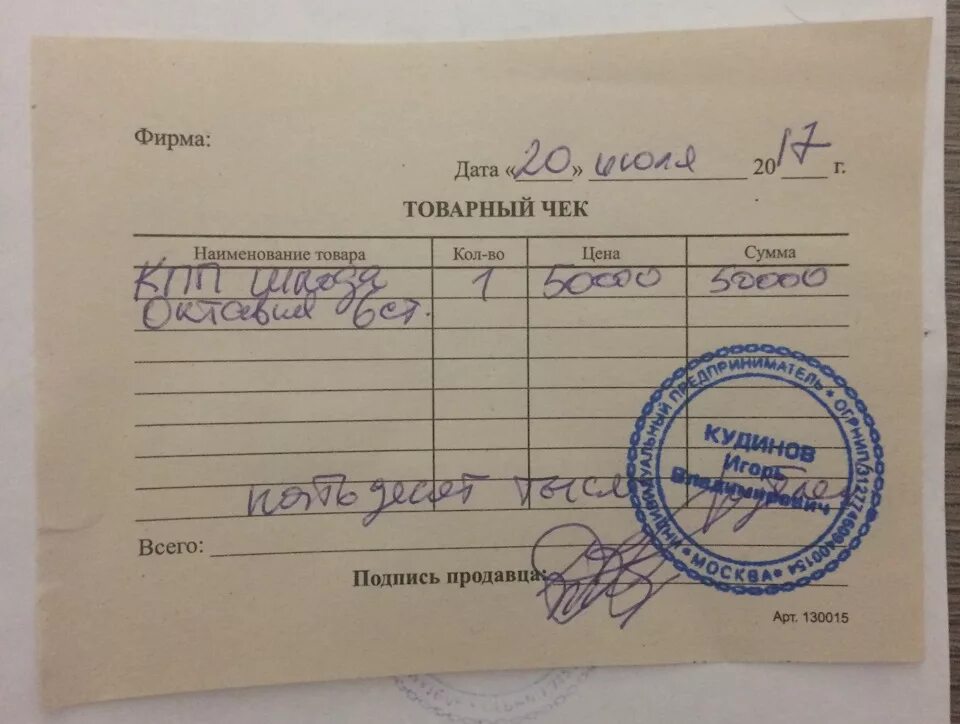 Фирма:
Дата «20» июля 2017 г.
ТОВАРНЫЙ ЧЕК
Наименование товара Кол-во Цена Сумма
КПП Шкода 1 50000 50000
Октавия 6ст.
ИНДИВИДУАЛЬНЫЙ ПРЕДПРИНИМАТЕЛЬ * ОГРНИП 312774609400154
* МОСКВА *
КУДИНОВ
Игорь
Владимирович
пятьдесят тысяч рублей
Всего:
Подпись продавца:
Арт. 130015